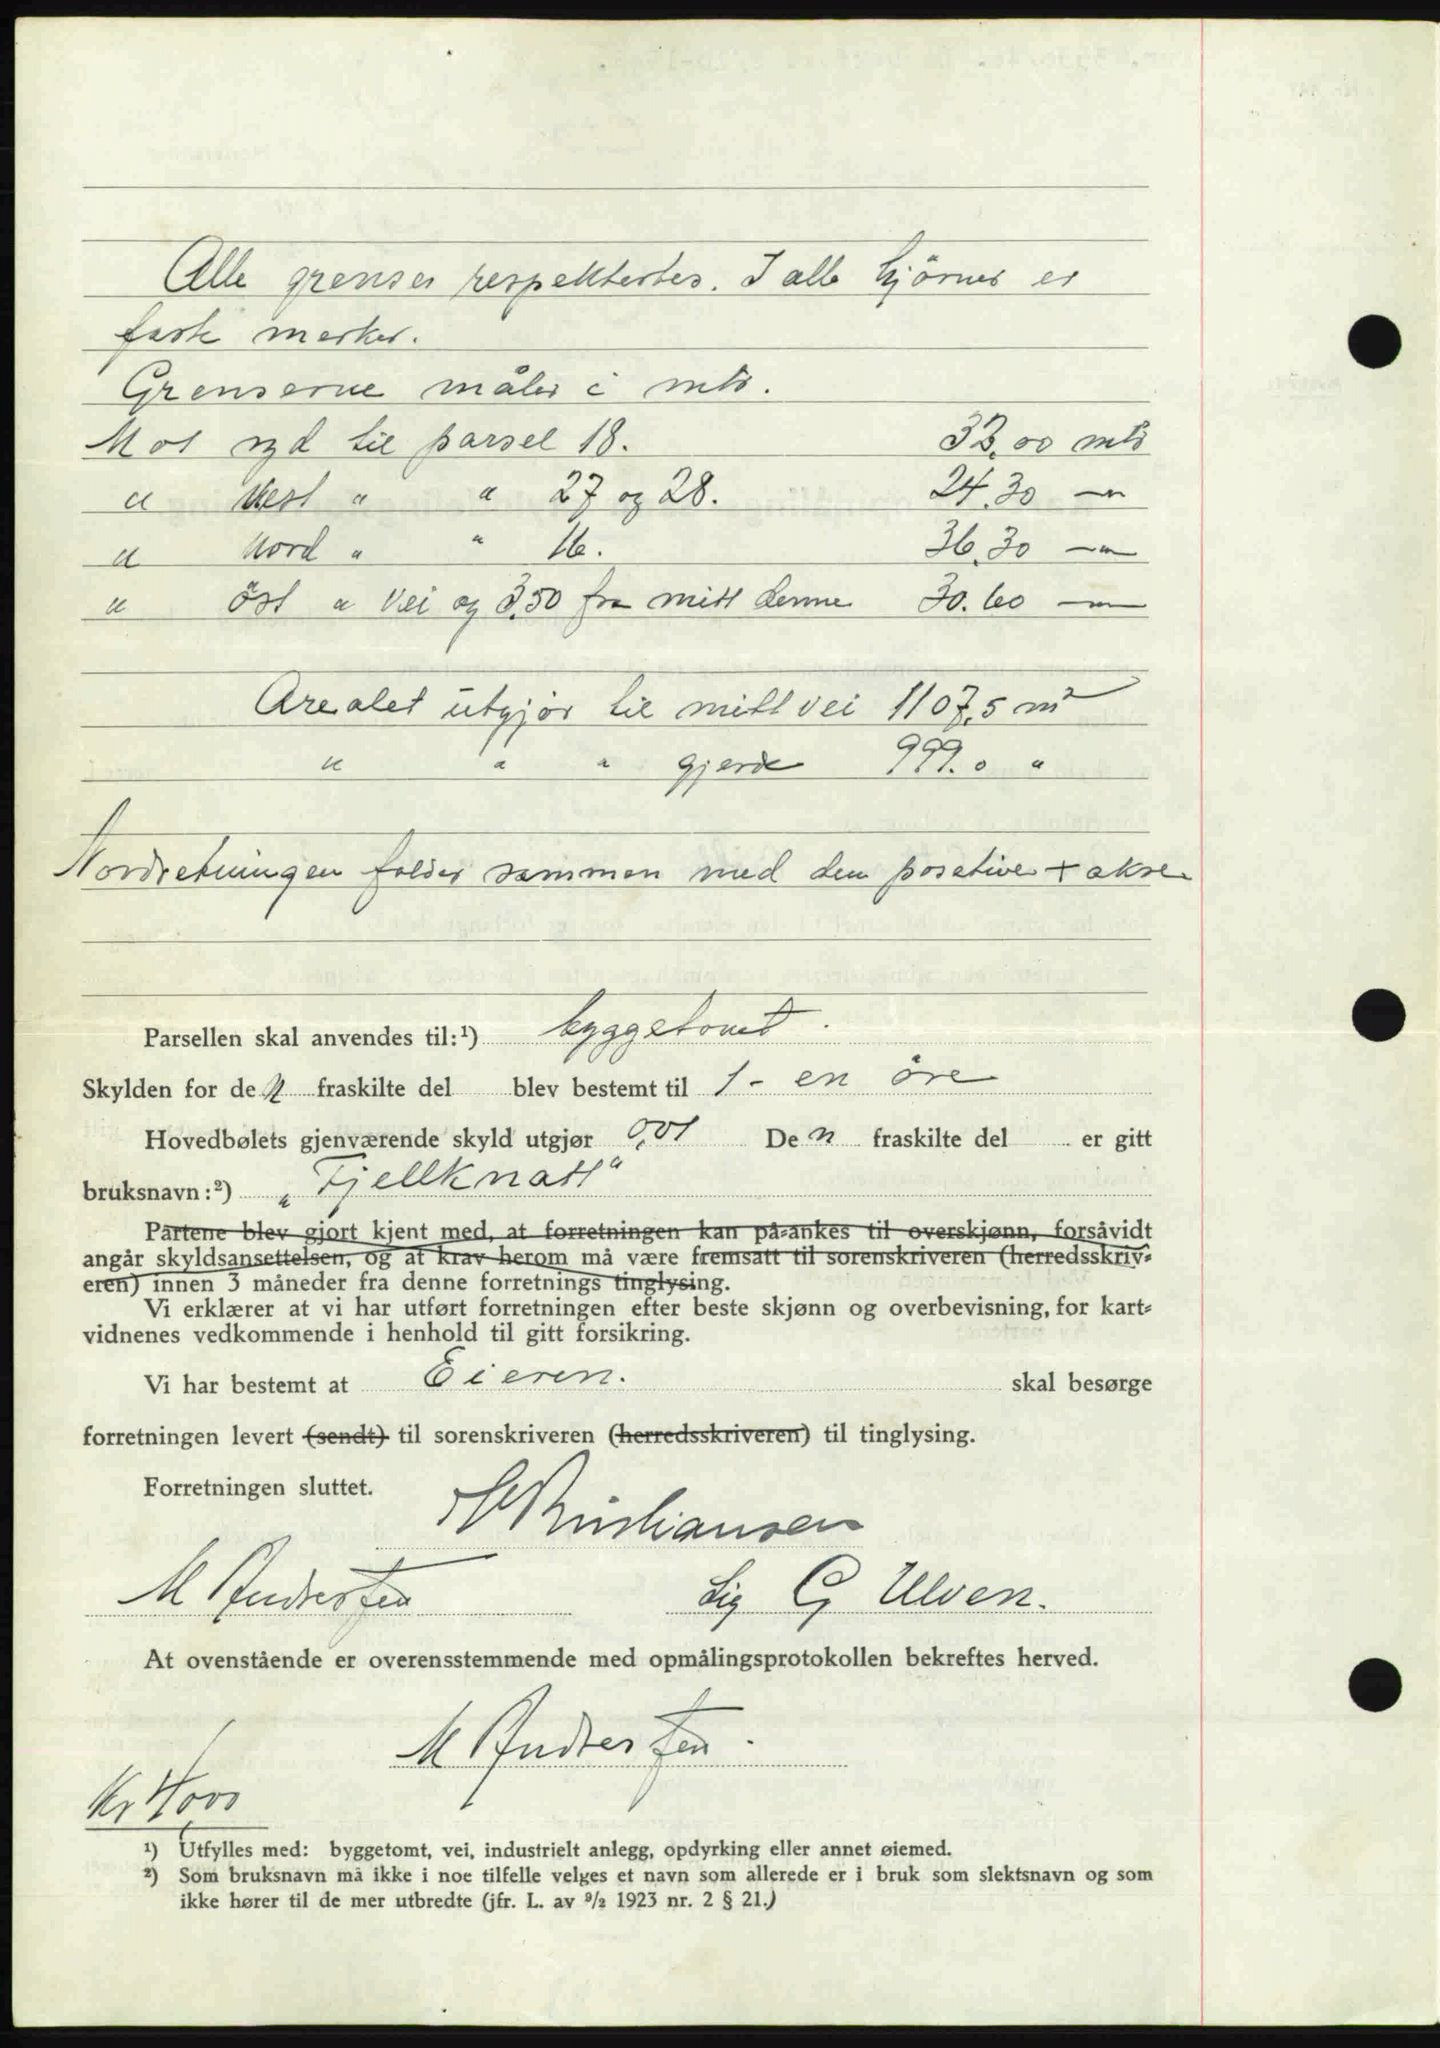 Alle grenser respektertes. I alle hjörner er
faste merker.
Grenserne måler i mtr.
Mot syd til parsel 18. 33,00 mtr
" Vest " " 27 og 28. 24,30 —"—
" Nord " " 16. 36,30 —"—
" öst " vei og 3,50 fra mitt denne 30.60 —"—
Arealet utgjør til mitt vei 1107,5 m²
" " " gjerde 999.0 "
Nordretningen falder sammen med den posetive + akse.
Parsellen skal anvendes til:¹) byggetomt.
Skylden for den fraskilte del blev bestemt til 1 - en öre
Hovedbølets gjenværende skyld utgjør 0,01 Den fraskilte del er gitt
bruksnavn:²) „Fjellknatt"
Partene blev gjort kjent med, at forretningen kan på-ankes til overskjønn, forsåvidt
angår skyldsansettelsen, og at krav herom må være fremsatt til sorenskriveren (herredsskriv-
eren) innen 3 måneder fra denne forretnings tinglysing.
Vi erklærer at vi har utført forretningen efter beste skjønn og overbevisning, for kart-
vidnenes vedkommende i henhold til gitt forsikring.
Vi har bestemt at Eieren. skal besørge
forretningen levert (sendt) til sorenskriveren (herredsskriveren) til tinglysing.
Forretningen sluttet.
Kristiansen
M Andersen Sig G Ulven.
At ovenstående er overensstemmende med opmålingsprotokollen bekreftes herved.
M Andersen.
Kr
¹) Utfylles med: byggetomt, vei, industrielt anlegg, opdyrking eller annet øiemed.
²) Som bruksnavn må ikke i noe tilfelle velges et navn som allerede er i bruk som slektsnavn og som
ikke hører til de mer utbredte (jfr. L. av 9/2 1923 nr. 2 § 21.)